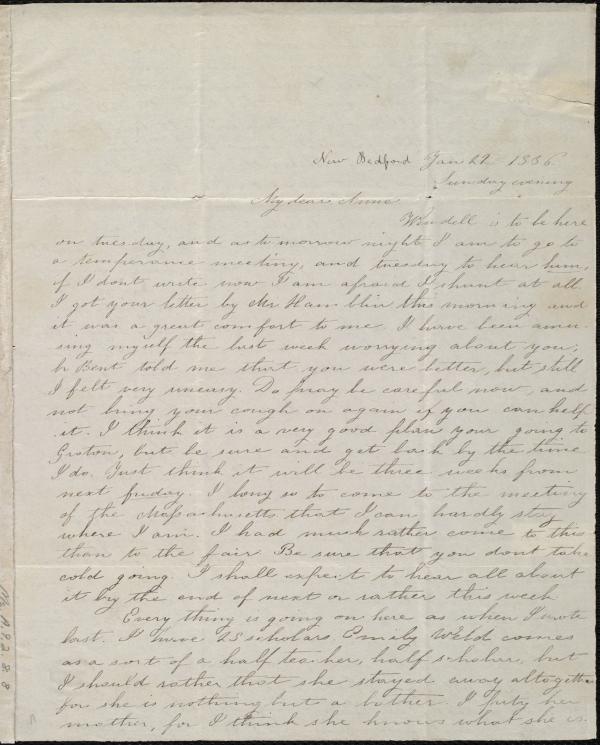 New Bedford Jan 29 1836
Sunday evening
My dear Anne
Wendell is to be here
on tuesday, and as tomorrow night I am to go to
a temperance meeting, and tuesday to hear him,
if I dont write now I am afraid I shant at all.
I got your letter by Mr Hamblin this morning and
it was a great comfort to me. I have been amu-
sing myself the last week worrying about you,
Mr Bent told me that you were better, but still
I felt very uneasy. Do pray be careful now, and
not bring your cough on again if you can help
it. I think it is a very good plan your going to
Groton, but be sure and get back by the time
I do. Just think it will be three weeks from
next friday. I long so to come to the meeting
of the Massachusetts that I can hardly stay
where I am. I had much rather come to this
than to the fair. Be sure that you dont take
cold going. I shall expect to hear all about
it by the end of next or rather this week.
Every thing is going on here as when I wrote
last. I have 25 scholars. Emily Weld comes
as a sort of a half teacher, half scholar, but
I should rather that she stayed away altogether
for she is nothing but a bother. I pity her
mother, for I think she knows what she is.